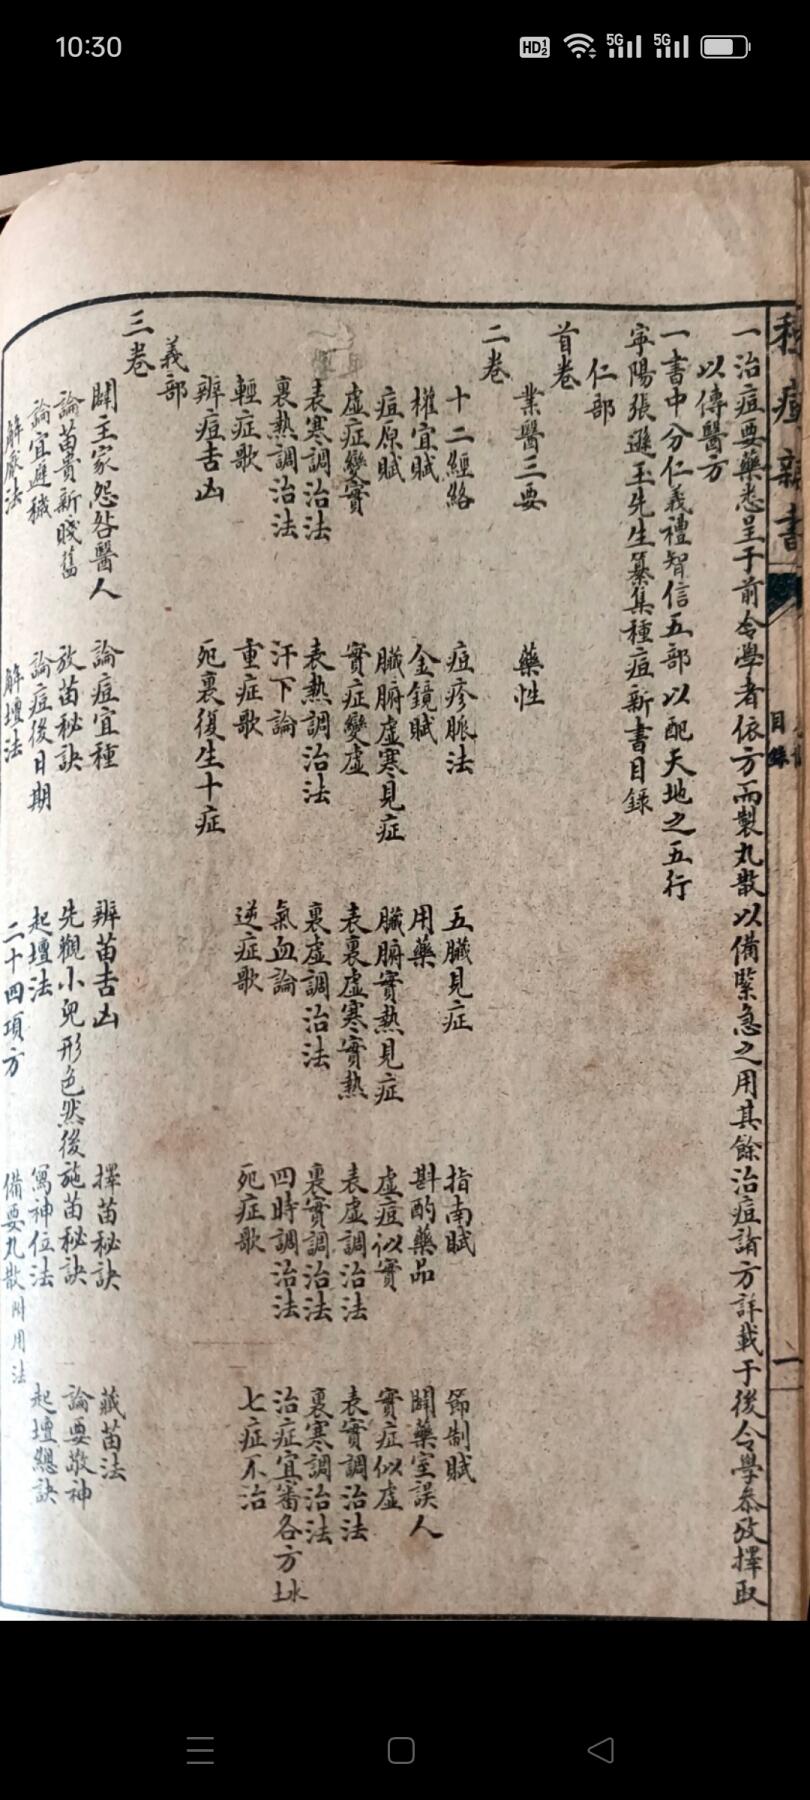 10:30
種痘新書
目錄
一
一治痘要藥悉呈于前令學者依方而製丸散以備緊急之用其餘治痘諸方詳載于後令學叅攷擇取
以傳醫方
一書中分仁義禮智信五部以配天地之五行
寜陽張遜玉先生纂集種痘新書目錄
仁部
首卷
業醫三要 藥性
二卷
十二經絡 痘疹脈法 五臟見症 指南賦 節制賦
權宜賦 金鏡賦 用藥 斟酌藥品 闢藥室誤人
痘原賦 臟腑虛寒見症 臟腑實熱見症 虛痘似實 實症似虛
虛症變實 實症變虛 表裏虛寒實熱 表虛調治法 表實調治法
表寒調治法 表熱調治法 裏虛調治法 裏實調治法 裏寒調治法
裏熱調治法 汗下論 氣血論 四時調治法 治症宜審各方土水
輕症歌 重症歌 逆症歌 死症歌 七症不治
辨痘吉凶 死裏復生十症
義部
三卷
闢主家怨咎醫人 論痘宜種 辨苗吉凶 擇苗秘訣 藏苗法
論苗貴新賤舊 放苗秘訣 先觀小兒形色然後施苗秘訣 論要敬神
論宜避穢 論症後日期 起壇法 寫神位法 起壇總訣
解厭法 解壇法 二十四項方 備要丸散附用法